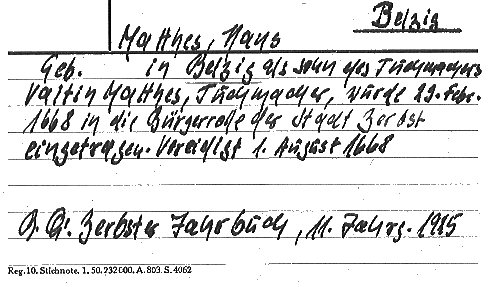 Belzig
Matthes, Hans
Geb. in Belzig als Sohn des Tuchmachers
Valtin Matthes, Tuchmacher, wurde 29. Febr.
1668 in die Bürgerrolle der Stadt Zerbst
eingetragen. Vereidigt 1. August 1668
Zerbster Jahrbuch, 11. Jahrg. 1925
Reg. 10. Stichnote. 1. 50. 232000. A. 803. S. 4062